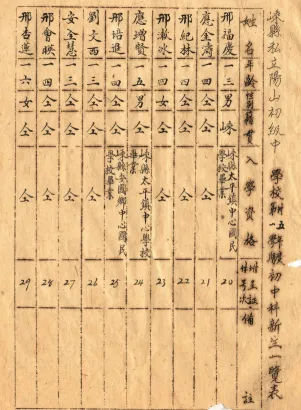 嵊縣私立陽山初級中學校第一五學年度初中科新生一覽表
姓名 年齡 性別 籍貫 入學資格 備註
邢福慶 一三 男 嵊 嵊縣太平鎮中心國民學校畢業 20
金濤 一四 仝 仝 仝 21
邢紀林 一四 仝 仝 仝 22
邢淑冰 一四 女 仝 仝 23
應增賢 一五 男 仝 嵊縣太平鎮中心學校畢業 24
邢培進 一四 仝 仝 嵊縣國鄉中心國民學校畢業 25
劉文西 一三 仝 仝 仝 26
安全慧 一三 仝 仝 仝 27
邢會映 一四 仝 仝 仝 28
邢杏蓮 一六 女 仝 仝 29